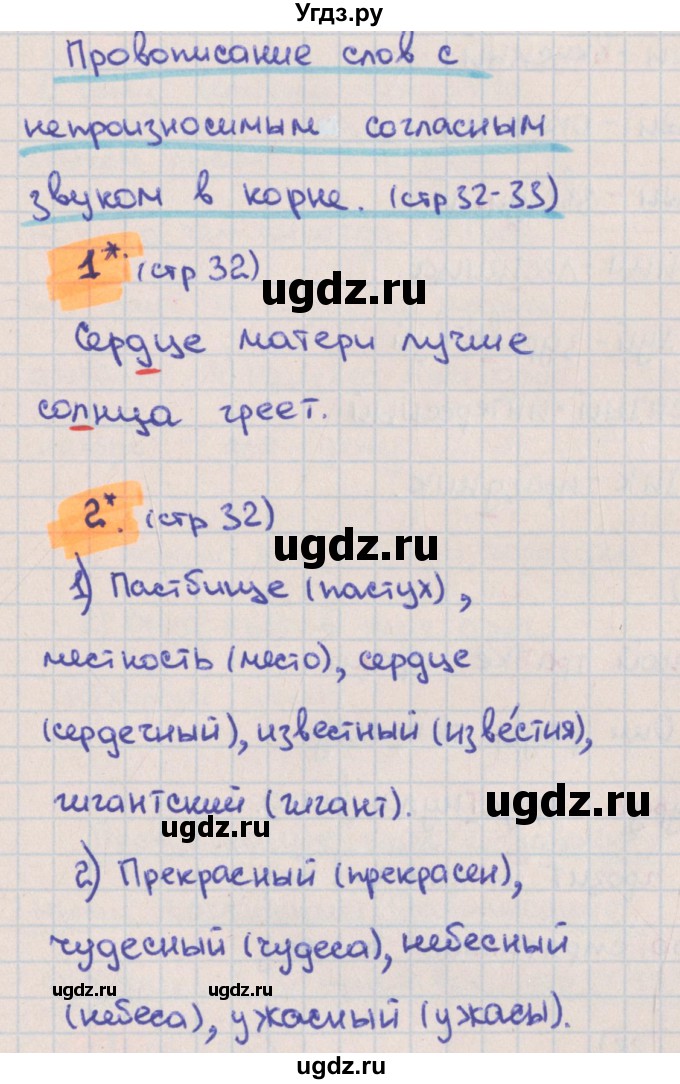 Угдз.ру
Провописание слов с
непроизносимым согласным
звуком в корне. (стр 32-33)
1*. (стр 32)
ugdz.ru
Сердце матери лучше
солнца греет.
2*. (стр 32)
ugdz.ru
1) Пастбище (пастух),
местность (место), сердце
(сердечный), известный (изве́стия),
гигантский (гигант).
ugdz.ru
ugdz.ru
2) Прекрасный (прекрасен),
чудесный (чудеса), небесный
ugdz.ru ugdz.ru
(небеса), ужасный (ужасы).
ugdz.ru